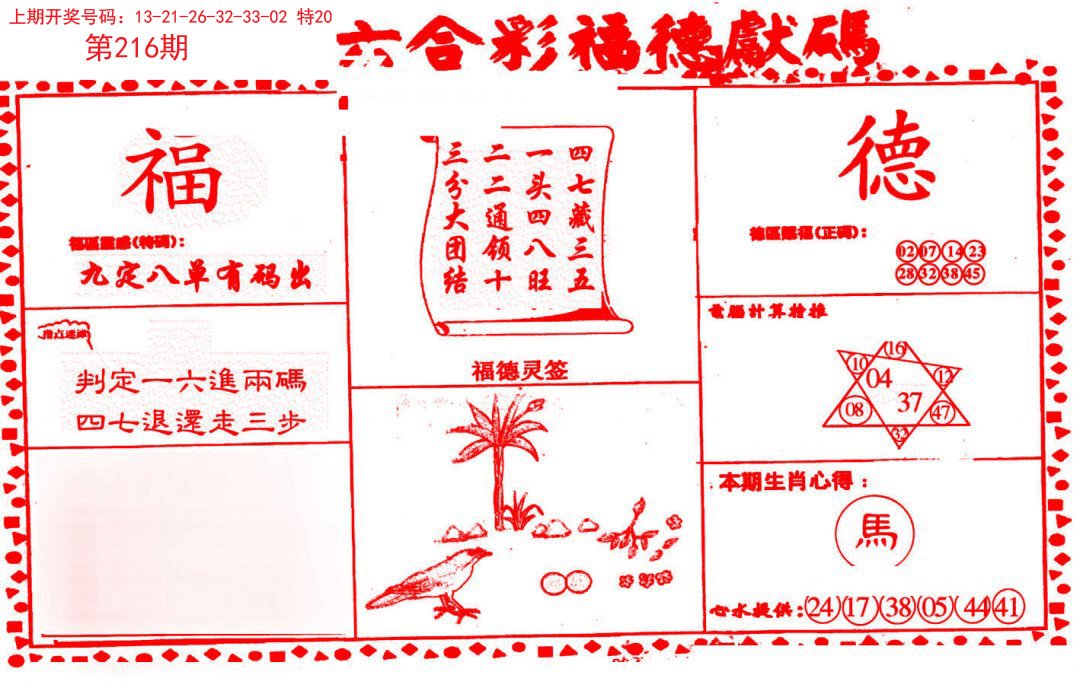 上期开奖号码：13-21-26-32-33-02 特20
第216期
六合彩福德獻碼
福
福區靈感(特碼)：
九定八单有码出
指点迷津
判定一六進兩碼
四七退還走三步
四七藏三五
一头四八旺
二二通领十
三分大团结
福德灵签
德
德區賜福(正碼)：
02 07 14 23
28 32 38 45
電腦計算特推
16
10 04 12
08 37 47
32
本期生肖心得：
馬
心水提供：24 17 38 05 44 41